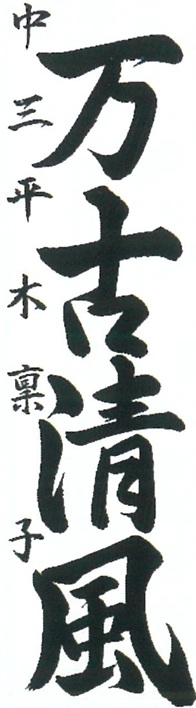 万古清風
中三平木稟子